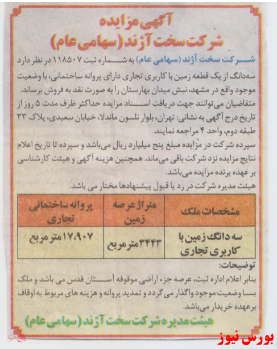 آگهی مزایده
شرکت سخت آژند (سهامی عام)
شرکت سخت آژند (سهامی عام) به شماره ثبت ۱۱۸۵۰۷ در نظر دارد
سه‌دانگ از یک قطعه زمین با کاربری تجاری دارای پروانه ساختمانی، با وضعیت
موجود واقع در مشهد، نبش میدان بهارستان را به صورت نقد به فروش برساند.
متقاضیان می‌توانند جهت دریافت اسناد مزایده حداکثر ظرف مدت ۵ روز از
تاریخ درج آگهی به نشانی: تهران، بلوار نلسون ماندلا، خیابان سعیدی، پلاک ۳۳
طبقه دوم، واحد ۴ مراجعه نمایند.
سپرده شرکت در مزایده مبلغ پنج میلیارد ریال می‌باشد، و سپرده تا تاریخ اعلام
نتایج مزایده نزد شرکت باقی می‌ماند. همچنین هزینه آگهی و هیئت کارشناسی
بر عهده برنده مزایده می‌باشد.
هیئت مدیره شرکت در رد یا قبول پیشنهادها مختار می باشد.
مشخصات ملک
متراژ عرصه زمین
پروانه ساختمانی تجاری
سه دانگ زمین با کاربری تجاری
۳۴۴۳ مترمربع
۱۷،۹۰۷ مترمربع
توضیحات:
بنابر اعلام اداره ثبت، عرصه جزء اراضی موقوفه آستان قدس می باشد و ملک
با وضعیت موجود واگذار می‌گردد و تمدید پروانه و هزینه های مربوط به اوقاف
برعهده خریدار می‌باشد.
هیئت مدیره شرکت سخت آژند (سهامی عام)
بورس نیوز